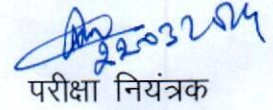 22032024
परीक्षा नियंत्रक